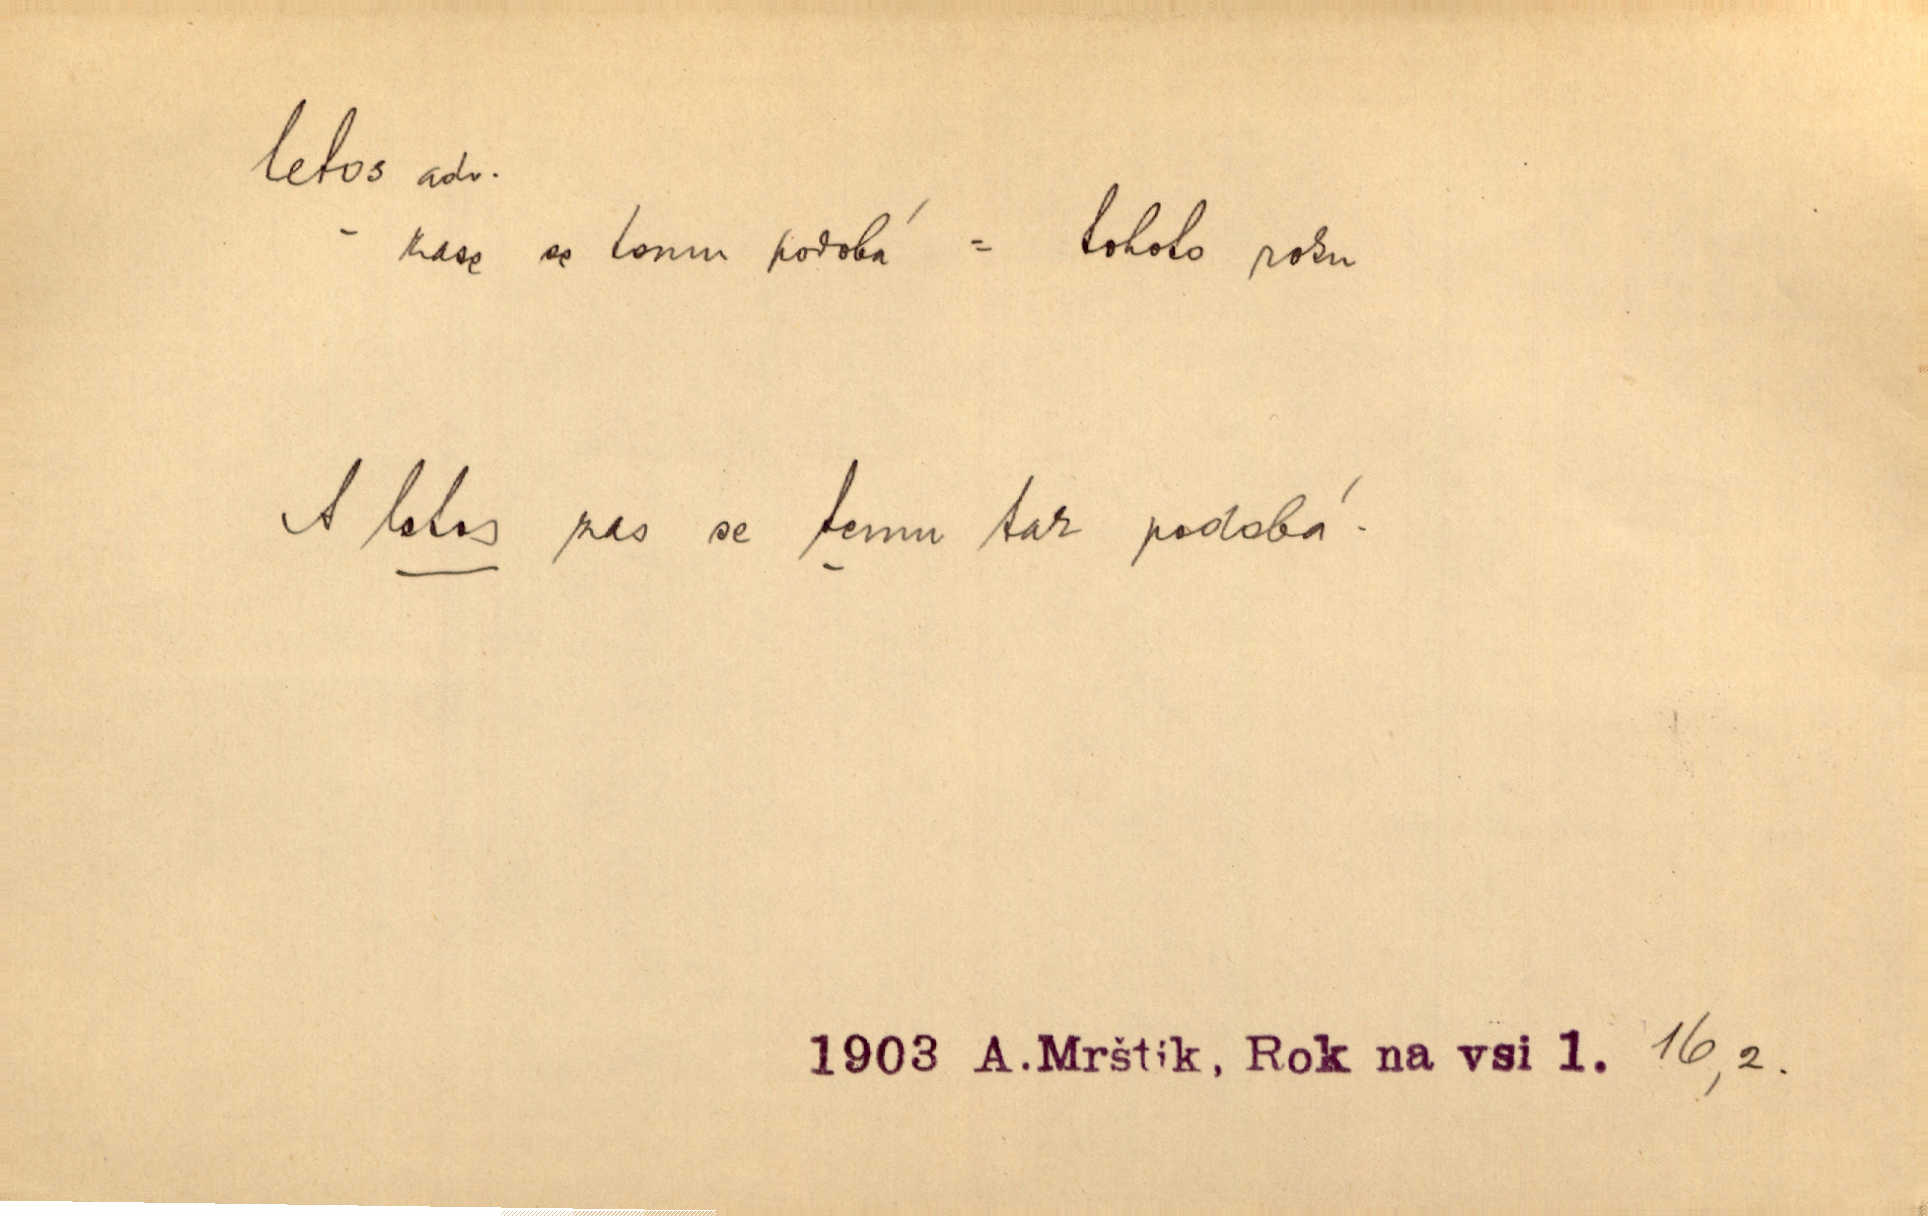 letos adv.
- zase se tomu podobá = tohoto roku
A letos zas se temu tak podobá.
1903 A.Mrštík, Rok na vsi 1. 16,2.